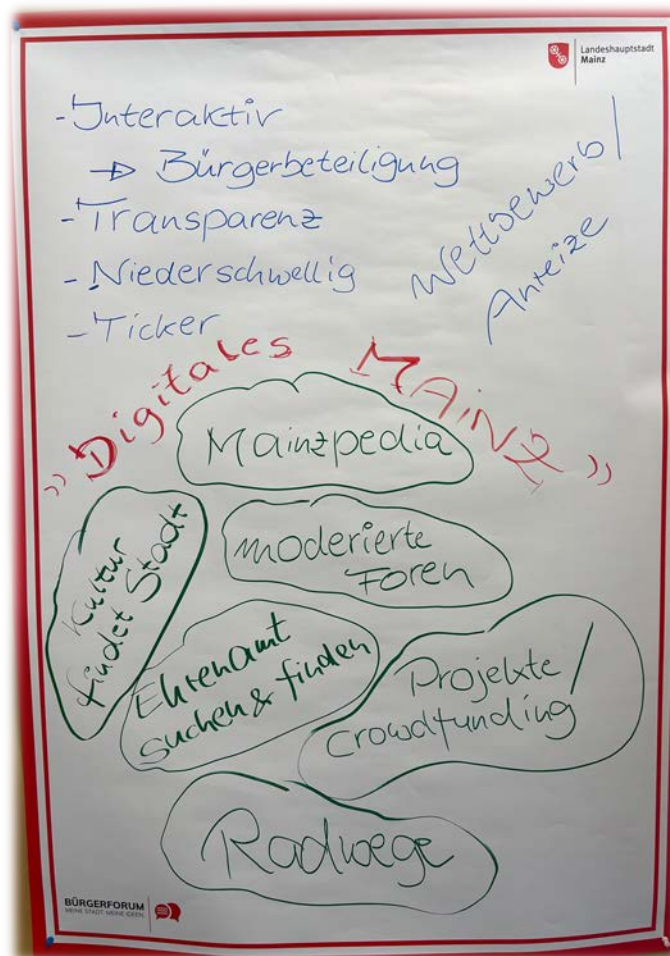 Landeshauptstadt
Mainz
- Interaktiv
→ Bürgerbeteiligung
- Transparenz
- Niederschwellig
- Ticker
Wettbewerb/
Anreize
"Digitales MAiNZ"
Mainzpedia
moderierte
Foren
Kultur
findet Stadt
Ehrenamt
suchen & finden
Projekte/
crowdfunding
Radwege
BÜRGERFORUM
MEINE STADT. MEINE IDEEN.